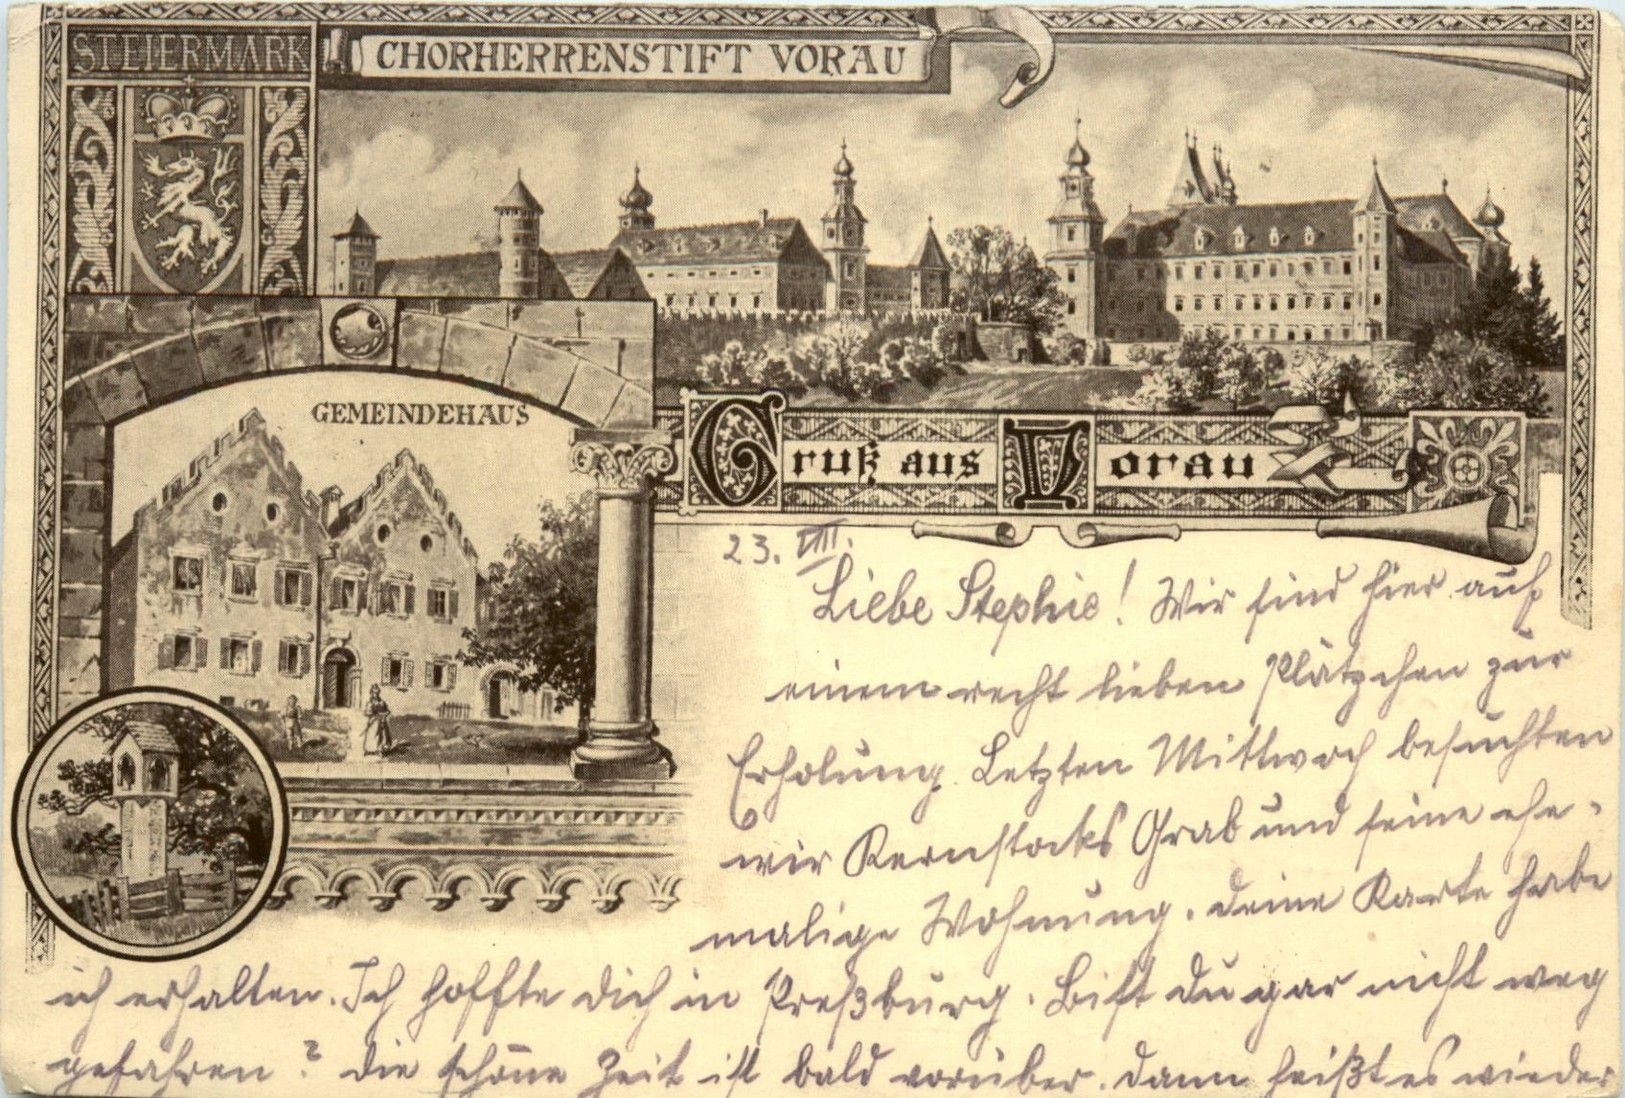 STEIERMARK
CHORHERRENSTIFT VORAU
GEMEINDEHAUS
Gruß aus Vorau
23. VIII.
Liebe Stephie! Wir sind hier auf
einem recht lieben Plätzchen zur
Erholung. Letzten Mittwoch besuchten
wir Kernstocks Grab und seine ehe-
malige Wohnung. Deine Karte habe
ich erhalten. Ich hoffte dich in Preßburg. Bist du gar nicht weg
gefahren? Die schöne Zeit ist bald vorüber. Dann heißt es wieder